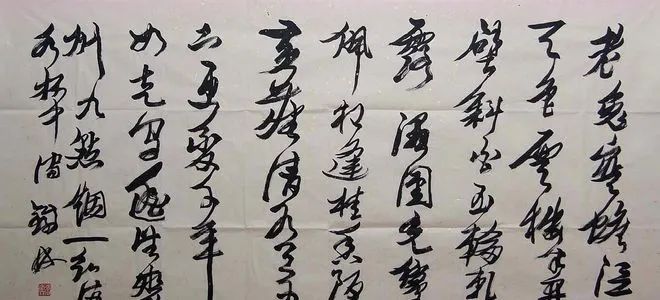 老兔寒蟾泣
天色雲樓半開
壁斜白玉輪軋
露濕團光鸞
佩相逢桂香陌
黄塵清水三山
下更變千年
如走馬遥望齊
州九點烟一泓海
水杯中瀉